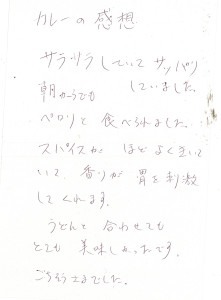 カレーの感想
サラサラしていて サッパリ
していました。
朝からでも
ペロリと 食べられました。
スパイスが ほどよくきいて
いて、香りが 胃を刺激
してくれます。
うどんと 合わせても
とても 美味しかったです。
ごちそうさまでした。